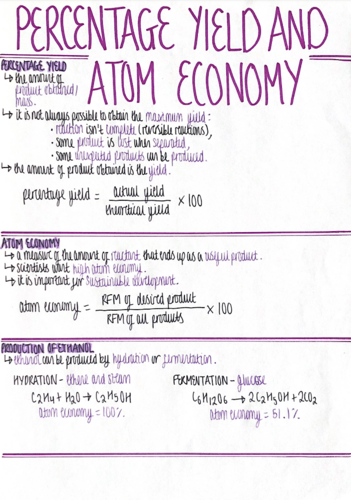 PERCENTAGE YIELD AND
ATOM ECONOMY
PERCENTAGE YIELD
↳ the amount of
product obtained/
mass.
↳ it is not always possible to obtain the maximum yield:
• reaction isn't complete (reversible reactions),
• some product is lost when separated,
• some unexpected products can be produced.
↳ the amount of product obtained is the yield.
percentage yield = actual yield / theoretical yield × 100
ATOM ECONOMY
↳ a measure of the amount of reactant that ends up as a useful product.
↳ scientists want high atom economy.
↳ it is important for sustainable development.
atom economy = RFM of desired product / RFM of all products × 100
PRODUCTION OF ETHANOL
↳ ethanol can be produced by hydration or fermentation.
HYDRATION - ethene and steam
C2H4 + H2O → C2H5OH
atom economy = 100%
FERMENTATION - glucose
C6H12O6 → 2C2H5OH + 2CO2
atom economy = 51.1%